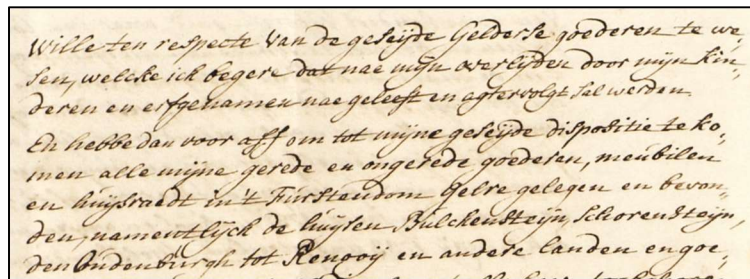 Wille ten respecte van de geseijde Gelderse goederen te we-
sen, welcke ick begere dat nae mijn overlijden door mijn kin-
deren en erfgenamen nae geleeft en agtervolgt sal werden.
En hebbe dan voor aff om tot mijne geseijde dispositie te ko-
men alle mijne gerede en ongerede goederen, meubilen
en huijsraedt in 't Furstendom Gelre gelegen en bevon-
den, namentlijck de huijsen Bulckensteijn, Schorensteijn,
den Oudenburgh tot Renooij en andere landen en goe-